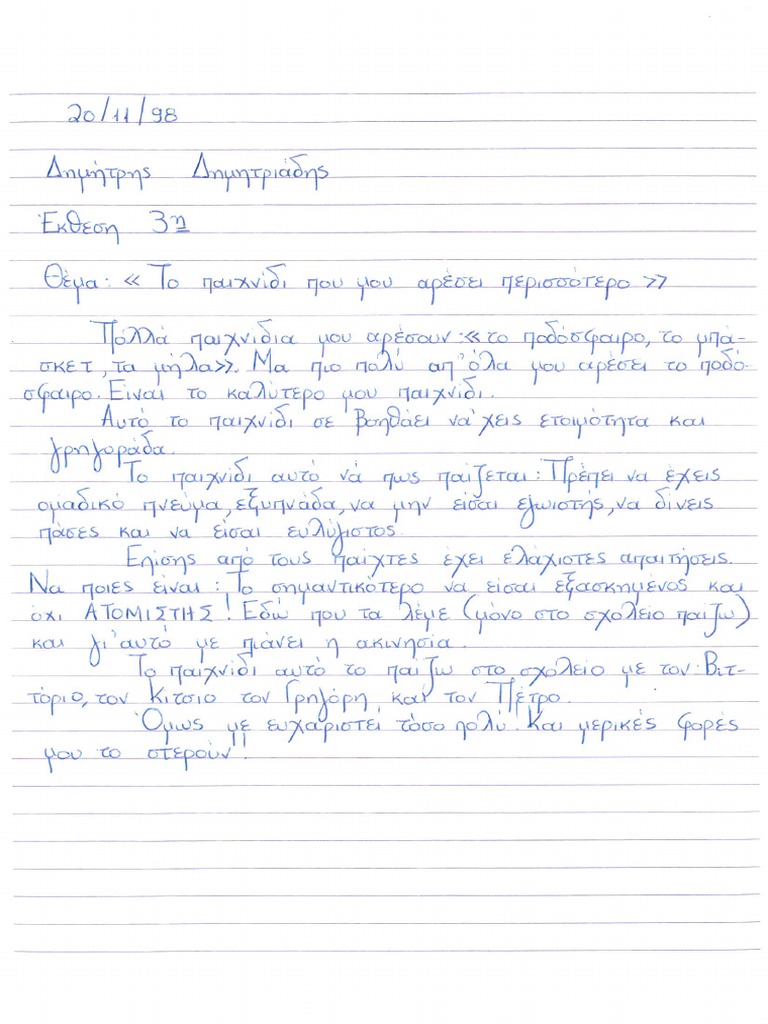 20/11/98
Δημήτρης Δημητριάδης
Έκθεση 3η
Θέμα: « Το παιχνίδι που μου αρέσει περισσότερο »
Πολλά παιχνίδια μου αρέσουν: «το ποδόσφαιρο, το μπά-
σκετ, τα μήλα». Μα πιο πολύ απ' όλα μου αρέσει το ποδό-
σφαιρο. Είναι το καλύτερο μου παιχνίδι.
Αυτό το παιχνίδι σε βοηθάει νά'χεις ετοιμότητα και
γρηγοράδα.
Το παιχνίδι αυτό νά πως παίζεται: Πρέπει να έχεις
ομαδικό πνεύμα, εξυπνάδα, να μην είσαι εγωιστής, να δίνεις
πάσες και να είσαι ευλύγιστος.
Επίσης από τους παίχτες έχει ελάχιστες απαιτήσεις.
Να ποιες είναι: Το σημαντικότερο να είσαι εξασκημένος και
όχι ΑΤΟΜΙΣΤΗΣ! Εδώ που τα λέμε (μόνο στο σχολείο παίζω)
και γι'αυτό με πιάνει η ακινησία.
Το παιχνίδι αυτό το παίζω στο σχολείο με τον: Βιτ-
τόριο, τον Κίτσιο τον Γρηγόρη, και τον Πέτρο.
Όμως με ευχαριστεί τόσο πολύ! Και μερικές φορές
μου το στερούν!!